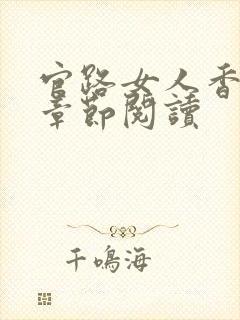 官路女人香
章節閱讀
千鳴海